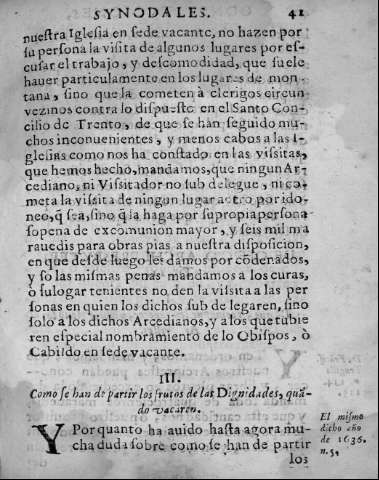 SYNODALES. 41
nuestra Iglesia en sede vacante, no hazen por
su persona la visita de algunos lugares por es-
cusar el trabajo, y descomodidad, que suele
hauer particulamente en los lugares de mon-
tana, sino que la cometen à clerigos circun
vezinos contra lo dispuesto en el Santo Con-
cilio de Trento, de que se hán seguido mu-
chos inconuenientes, y menos cabos a las I-
glesias como nos ha constado en las vissitas,
que hemos hecho, mandamos, que ningun Ar-
cediano, ni Vissitador no sub delegue, ni co-
meta la vissita de ningun lugar a otro por ido-
neo, q̃ sea, sino q̃ la haga por su propia persona
sopena de excomunion mayor, y seis mil ma
rauedis para obras pias a nuestra disposicion,
en que desde luego les damos por cõdenados,
y so las mismas penas mandamos a los curas,
ò sulogar tenientes no den la vissita a las per
sonas en quien los dichos sub de legaren, sino
solo a los dichos Arcedianos, y a los que tubie
ren especial nombramiento de lo Obispos, ò
Cabildo en sede vacante.
III.
Como se han de partir los frutos de las Dignidades, quã-
do vacaren.
Y Por quanto ha auido hasta agora mu-
cha duda sobre como se han de partir
los
El mismo
dicho año
de 1636.
n. 5.